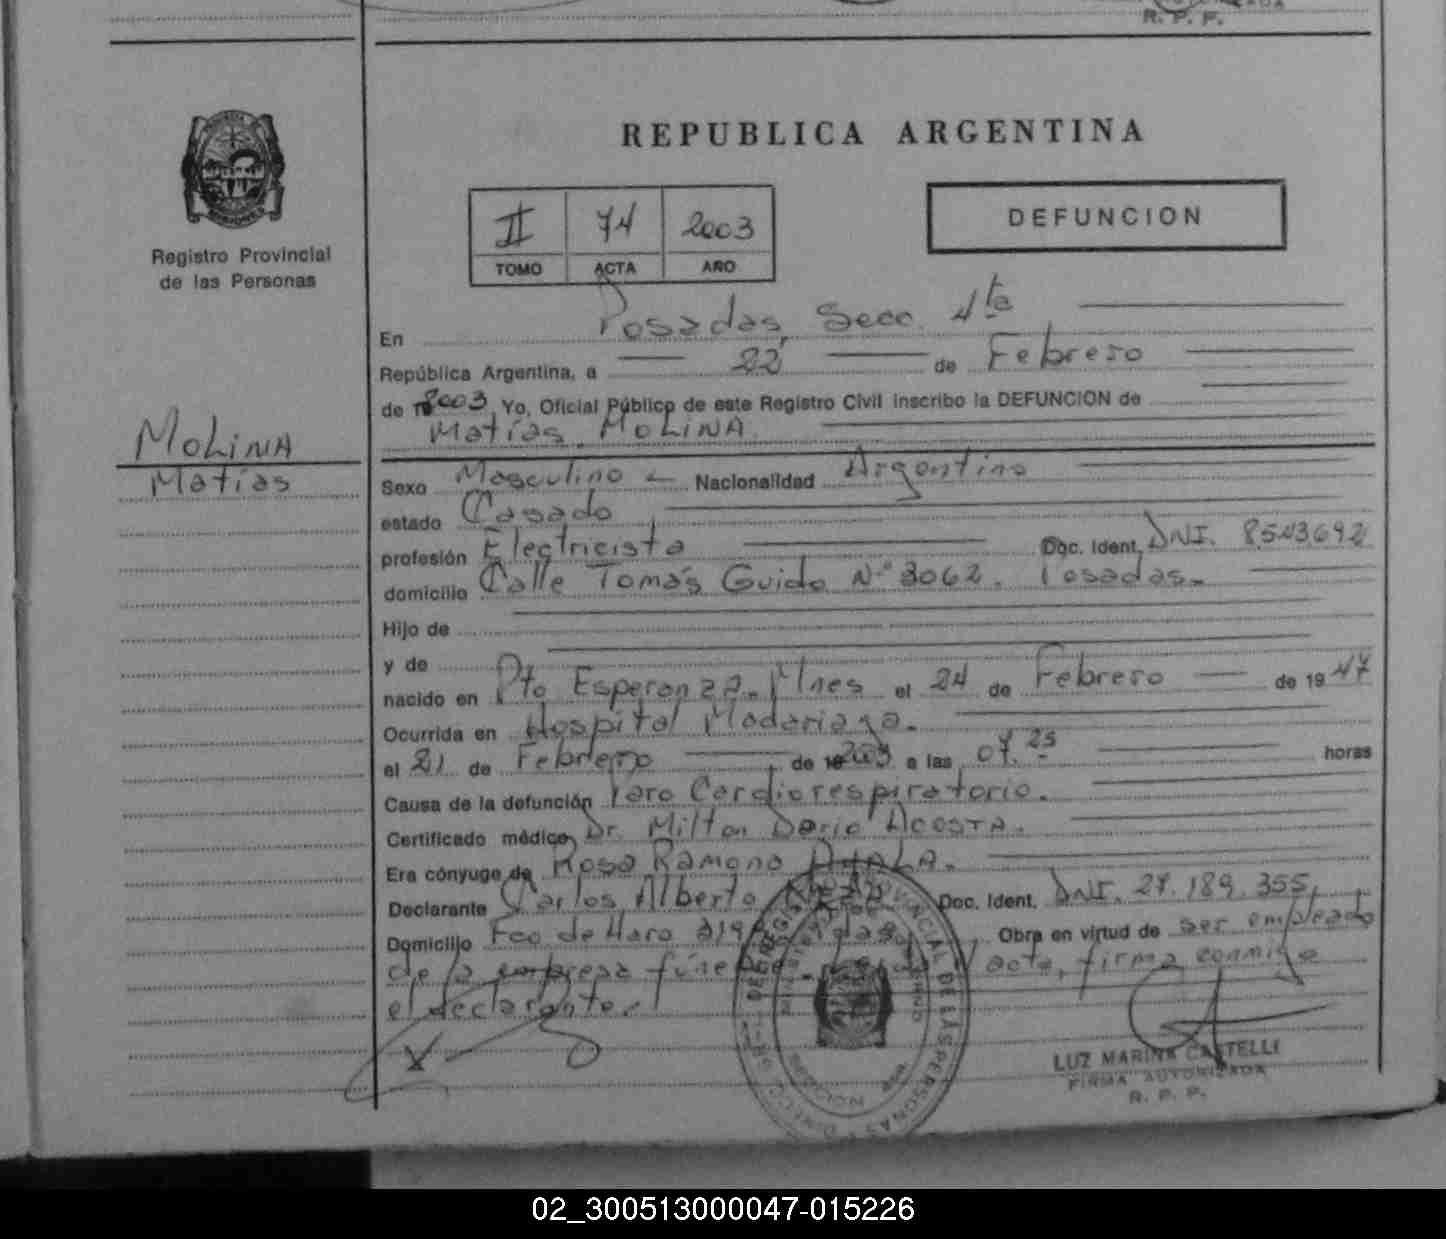 R. P. P.
REPUBLICA ARGENTINA
II 74 2003
TOMO ACTA AÑO
DEFUNCION
Registro Provincial
de las Personas
En Posadas, Secc. 4ta
República Argentina, a 22 de Febrero
de 2003 Yo, Oficial Público de este Registro Civil inscribo la DEFUNCION de
Matías MOLINA
MOLINA
Matías
Sexo Masculino Nacionalidad Argentino
estado Casado
profesión Electricista Doc. Ident. DNI. 8.543.692
domicilio Calle Tomás Guido Nº 3062. Posadas.
Hijo de
y de
nacido en Pto Esperanza. Mnes el 24 de Febrero de 1947
Ocurrida en Hospital Madariaga.
el 21 de Febrero de 2003 a las 07.25 horas
Causa de la defunción Paro Cardiorespiratorio.
Certificado médico Dr. Milton Dario ACOSTA.
Era cónyuge de Rosa Ramona AYALA.
Declarante Carlos Alberto Doc. Ident. DNI. 27.189.355
Domicilio Fco de Haro Obra en virtud de ser empleado
de la empresa acta, firma conmigo
el declarante.
X
LUZ MARINA CASTELLI
FIRMA AUTORIZADA
R. P. P.
02_300513000047-015226